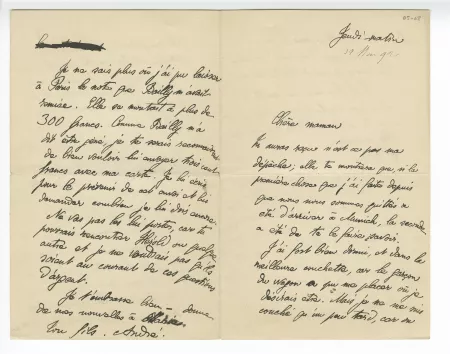 Jeudi matin
Chère maman
Tu auras reçu n'est ce pas ma
dépêche; elle te montrera que, si la
première chose que j'ai faite depuis
que nous nous sommes quittés a
été d'arriver à Munich, la seconde
a été de te le faire savoir.
J'ai fort bien dormi, et dans la
meilleure couchette, car le garçon
du wagon a pu me placer où je
désirais être. Mais je ne me suis
couché qu'un peu tard, car on
Je ne sais plus où j'ai pu laisser
à Paris la note que Bailly m'avait
remise. Elle se montait à plus de
300 francs. Comme Bailly m'a
dit être gêné, je te serais reconnaissant
de bien vouloir lui envoyer trois cent
francs avec ma carte. Je lui écris
pour le prévenir de cet envoi et lui
demander combien je lui dois encore.
Ne va pas les lui porter, car tu
pourrais rencontrer Hérold ou quelque
autre et je ne voudrais pas qu'ils
soient au courant de ces questions
d'argent.
Je t'embrasse bien - donne
de nos nouvelles à
Ton fils. André.